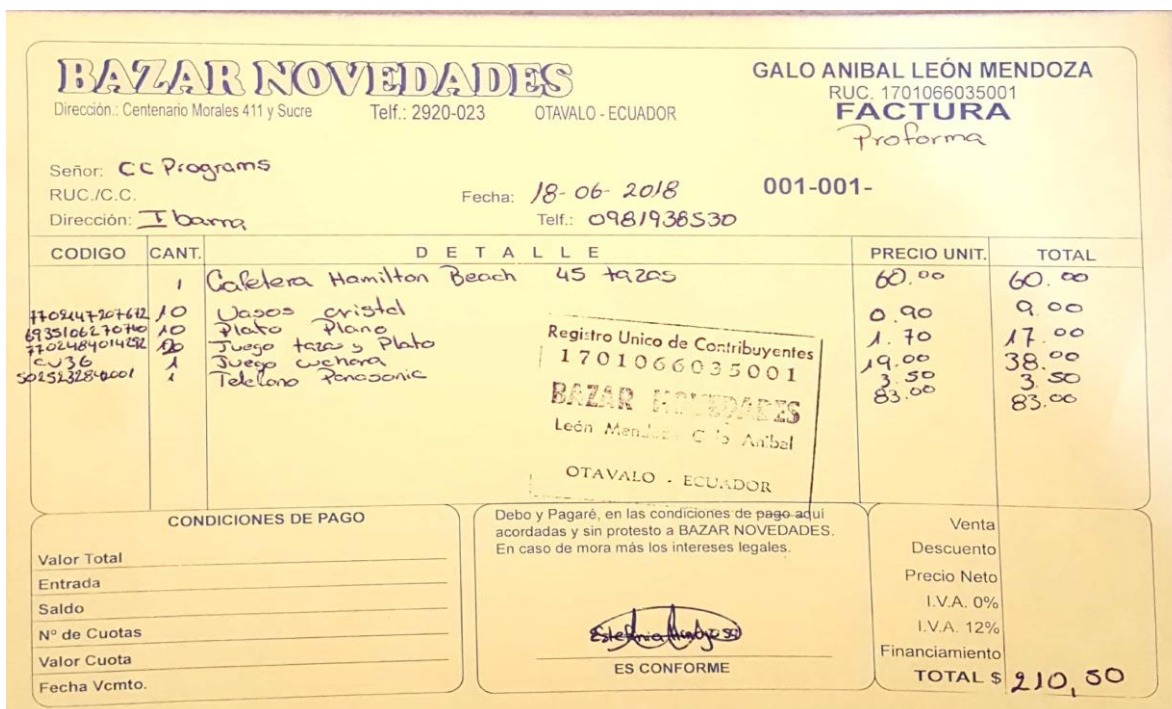 BAZAR NOVEDADES
Dirección.: Centenario Morales 411 y Sucre Telf.: 2920-023 OTAVALO - ECUADOR
GALO ANIBAL LEÓN MENDOZA
RUC. 1701066035001
FACTURA
Proforma
Señor: CC Programs
RUC./C.C. Fecha: 18-06-2018 001-001-
Dirección: Ibarra Telf.: 0981938530
CODIGO CANT. DETALLE PRECIO UNIT. TOTAL
1 Cafetera Hamilton Beach 45 tazas 60.00 60.00
10 Vasos cristal 0.90 9.00
6935106270740 10 Plato Plano 1.70 17.00
Juego tazas y Plato 19.00 38.00
CU36 1 Juego cuchara 3.50 3.50
1 Telefono Panasonic 83.00 83.00
Registro Unico de Contribuyentes
1701066035001
BAZAR NOVEDADES
León Mendoza Galo Anibal
OTAVALO - ECUADOR
CONDICIONES DE PAGO
Valor Total
Entrada
Saldo
Nº de Cuotas
Valor Cuota
Fecha Vcmto.
Debo y Pagaré, en las condiciones de pago aquí
acordadas y sin protesto a BAZAR NOVEDADES.
En caso de mora más los intereses legales.
ES CONFORME
Venta
Descuento
Precio Neto
I.V.A. 0%
I.V.A. 12%
Financiamiento
TOTAL $ 210,50